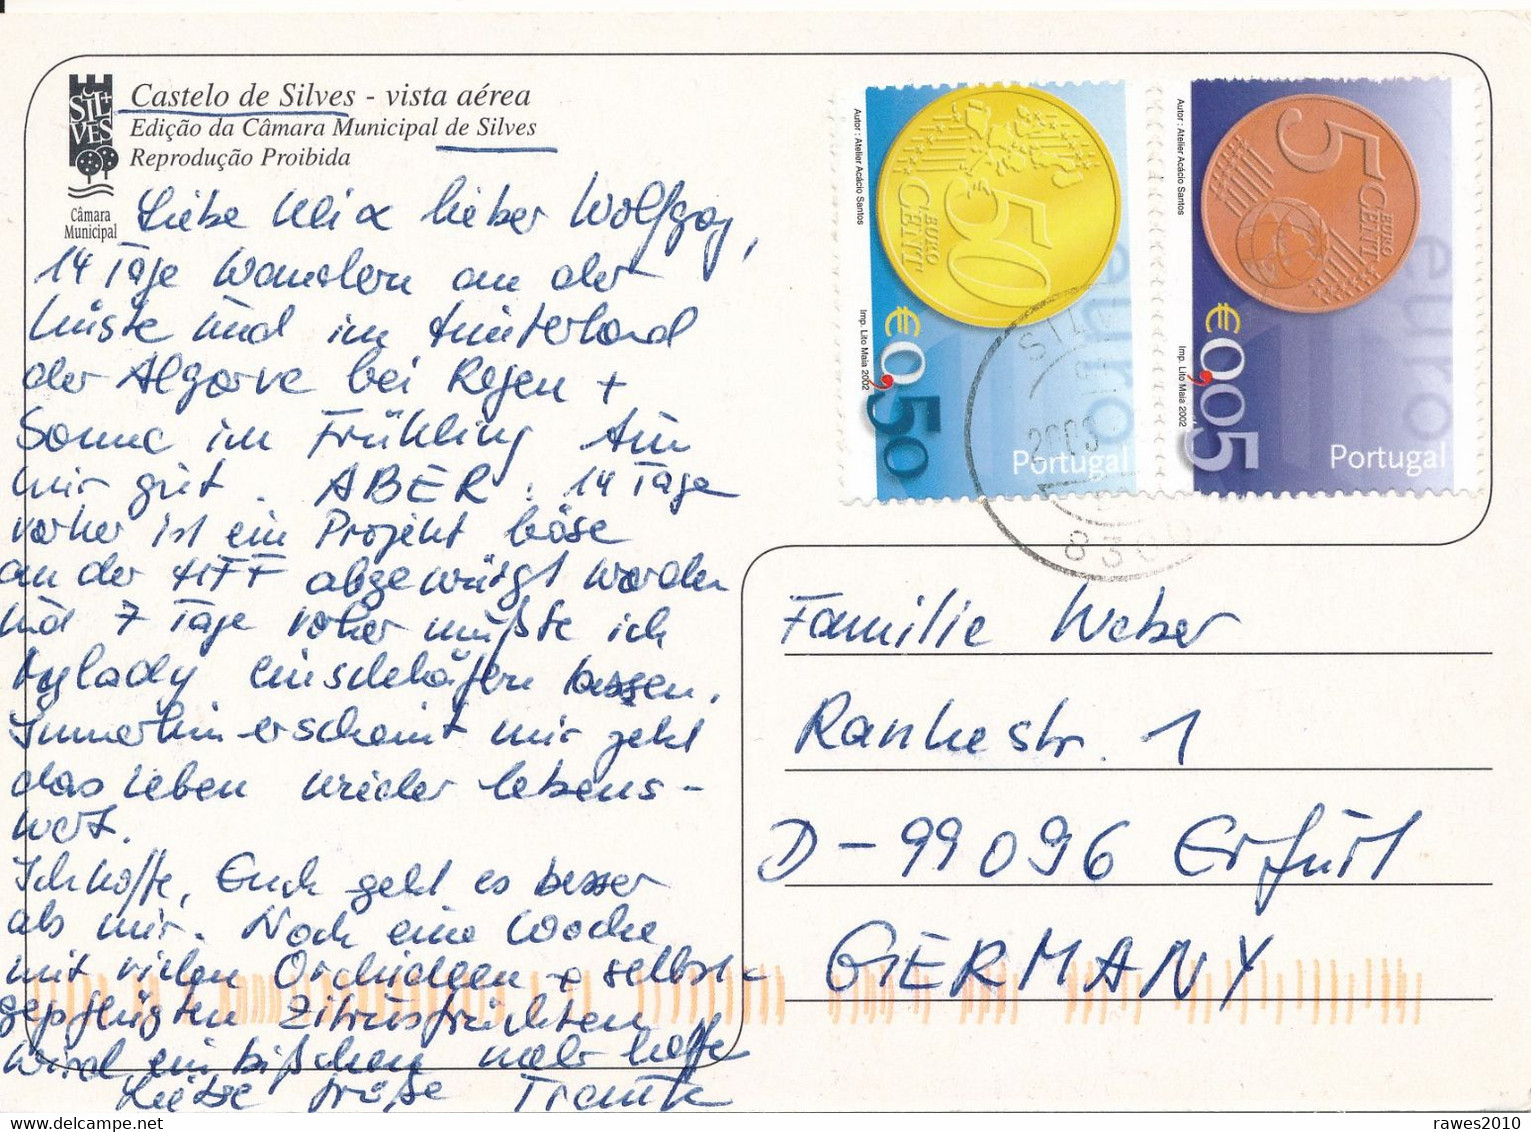 SIL+
VES
Castelo de Silves - vista aérea
Edição da Câmara Municipal de Silves
Reprodução Proibida
Câmara
Municipal
Liebe lieber Wolfgang,
14 Tage Wandern an der
Küste und im Hinterland
der Algarve bei Regen +
Sonne im Frühling tun
mir gut. ABER: 14 Tage
vorher ist ein Projekt böse
an der HFF abgewürgt worden
und 7 Tage vorher mußte ich
Mylady einschläfern lassen.
Immerhin erscheint mir jetzt
das Leben wieder lebens-
wert.
Ich hoffe, Euch geht es besser
als mir. Noch eine Woche
mit vielen Orchideen + selbst-
gepflügten Zitrusfrüchten
wird ein bißchen mehr
Liebe Grüße
Autor : Atelier Acácio Santos
50
EURO
CENT
€0,50
Imp. Lito Maia 2002
euro
Portugal
Autor : Atelier Acácio Santos
5
EURO
CENT
€0,05
Imp. Lito Maia 2002
euro
Portugal
Familie Weber
Rankestr. 1
D-99096 Erfurt
GERMANY
rawes2010